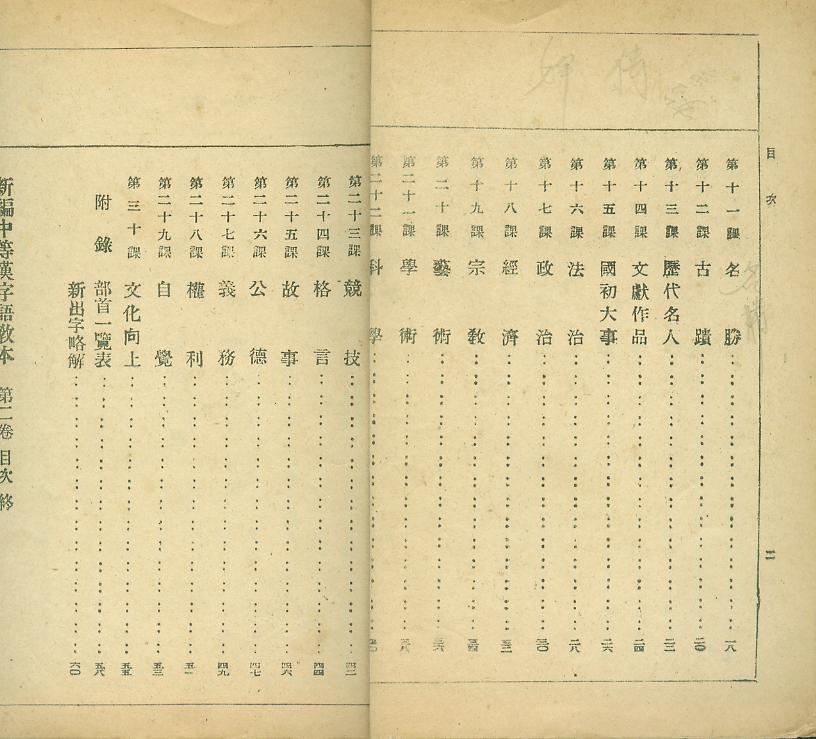 目次 二
第十一課 名勝 一八
第十二課 古蹟 二〇
第十三課 歷代名人 二二
第十四課 文獻作品 二四
第十五課 國初大事 二六
第十六課 法治 二八
第十七課 政治 三〇
第十八課 經濟 三二
第十九課 宗敎 三四
第二十課 藝術 三六
第二十一課 學術 三八
第二十二課 科學 四〇
第二十三課 競技 四二
第二十四課 格言 四四
第二十五課 故事 四六
第二十六課 公德 四七
第二十七課 義務 四九
第二十八課 權利 五一
第二十九課 自覺 五三
第三十課 文化向上 五五
附錄 部首一覽表 五八
新出字略解 六〇
新編中等漢字語敎本 第二卷 目次 終